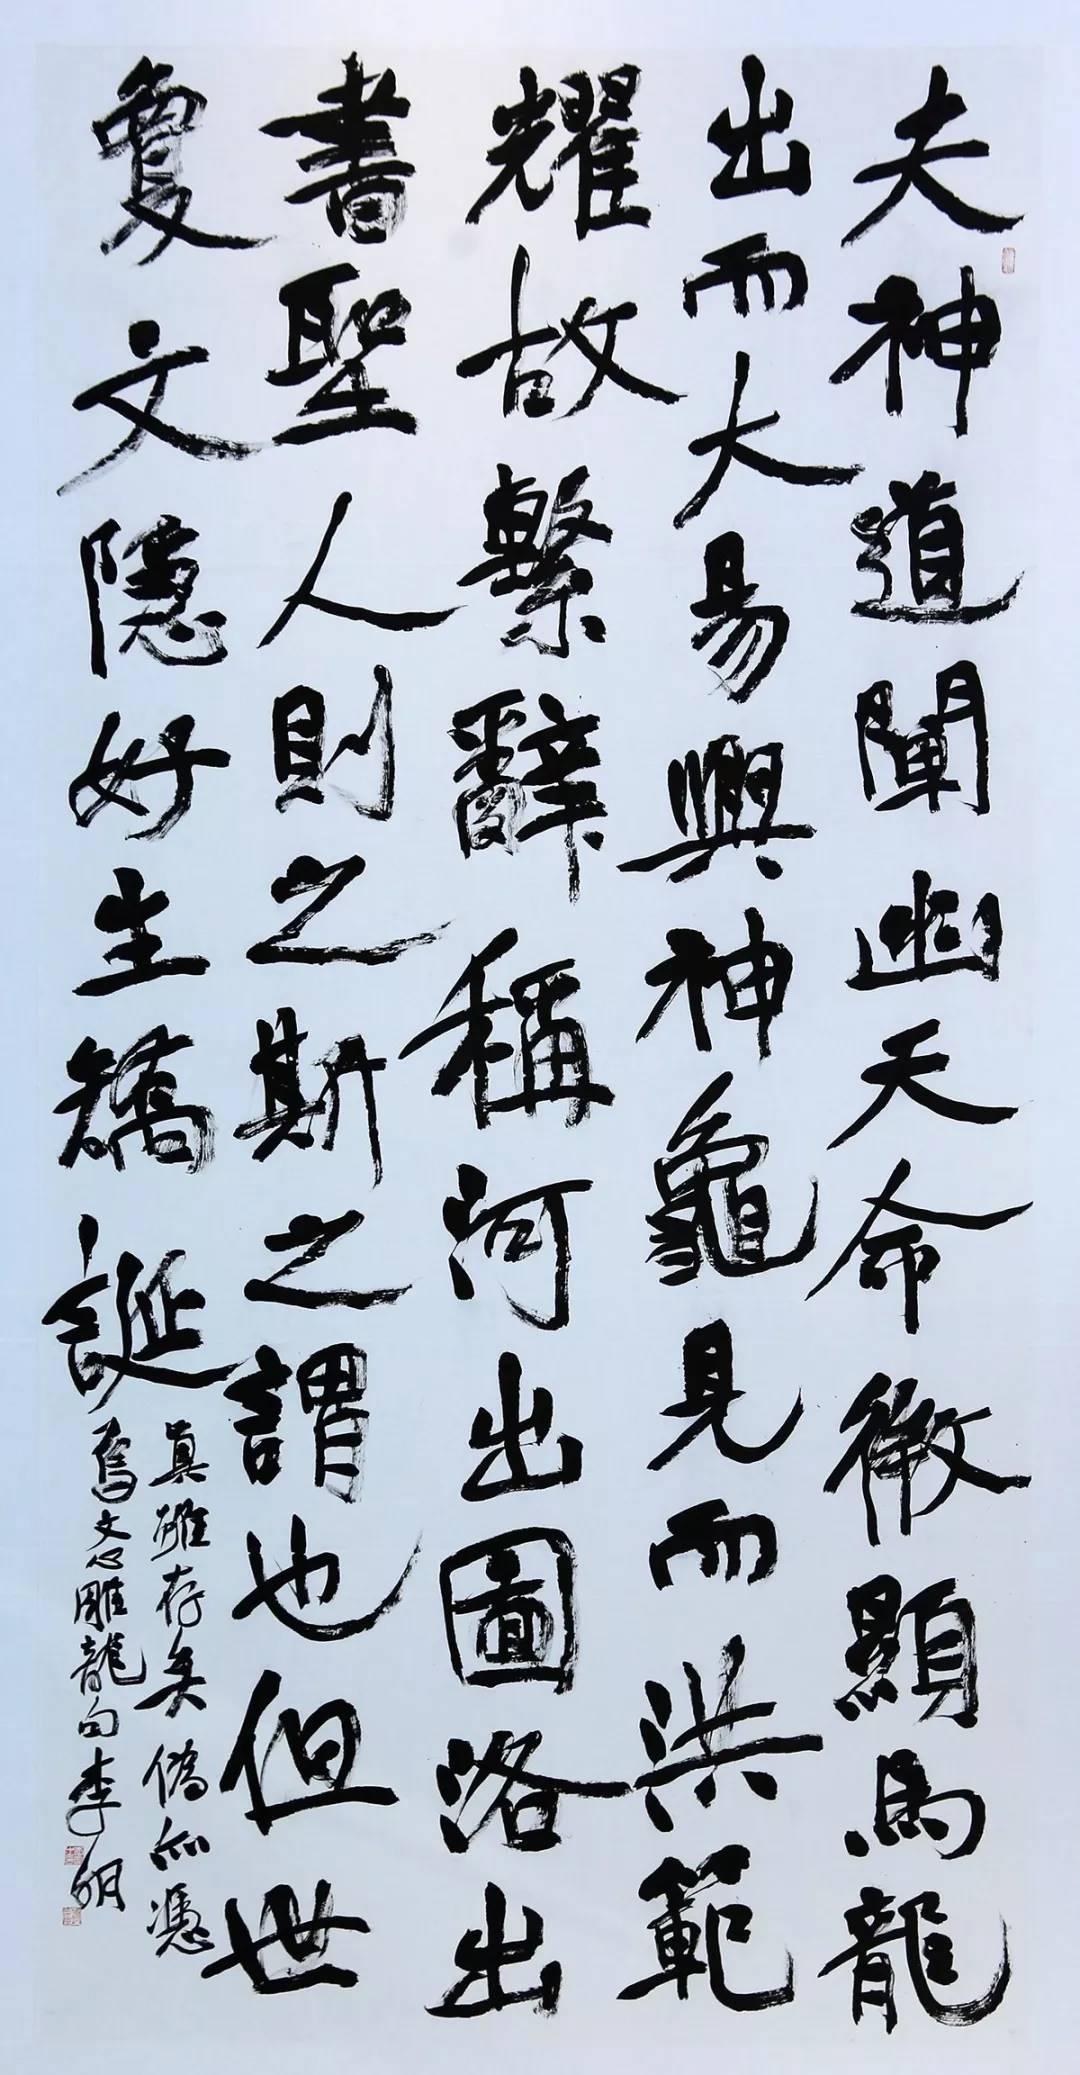 夫神道闡幽天命微顯馬龍
出而大易興神龜見而洪範
耀故繫辭稱河出圖洛出
書聖人則之斯之謂也但世
夐文隱好生矯誕
真雖存矣偽亦憑
舊文心雕龍句李明